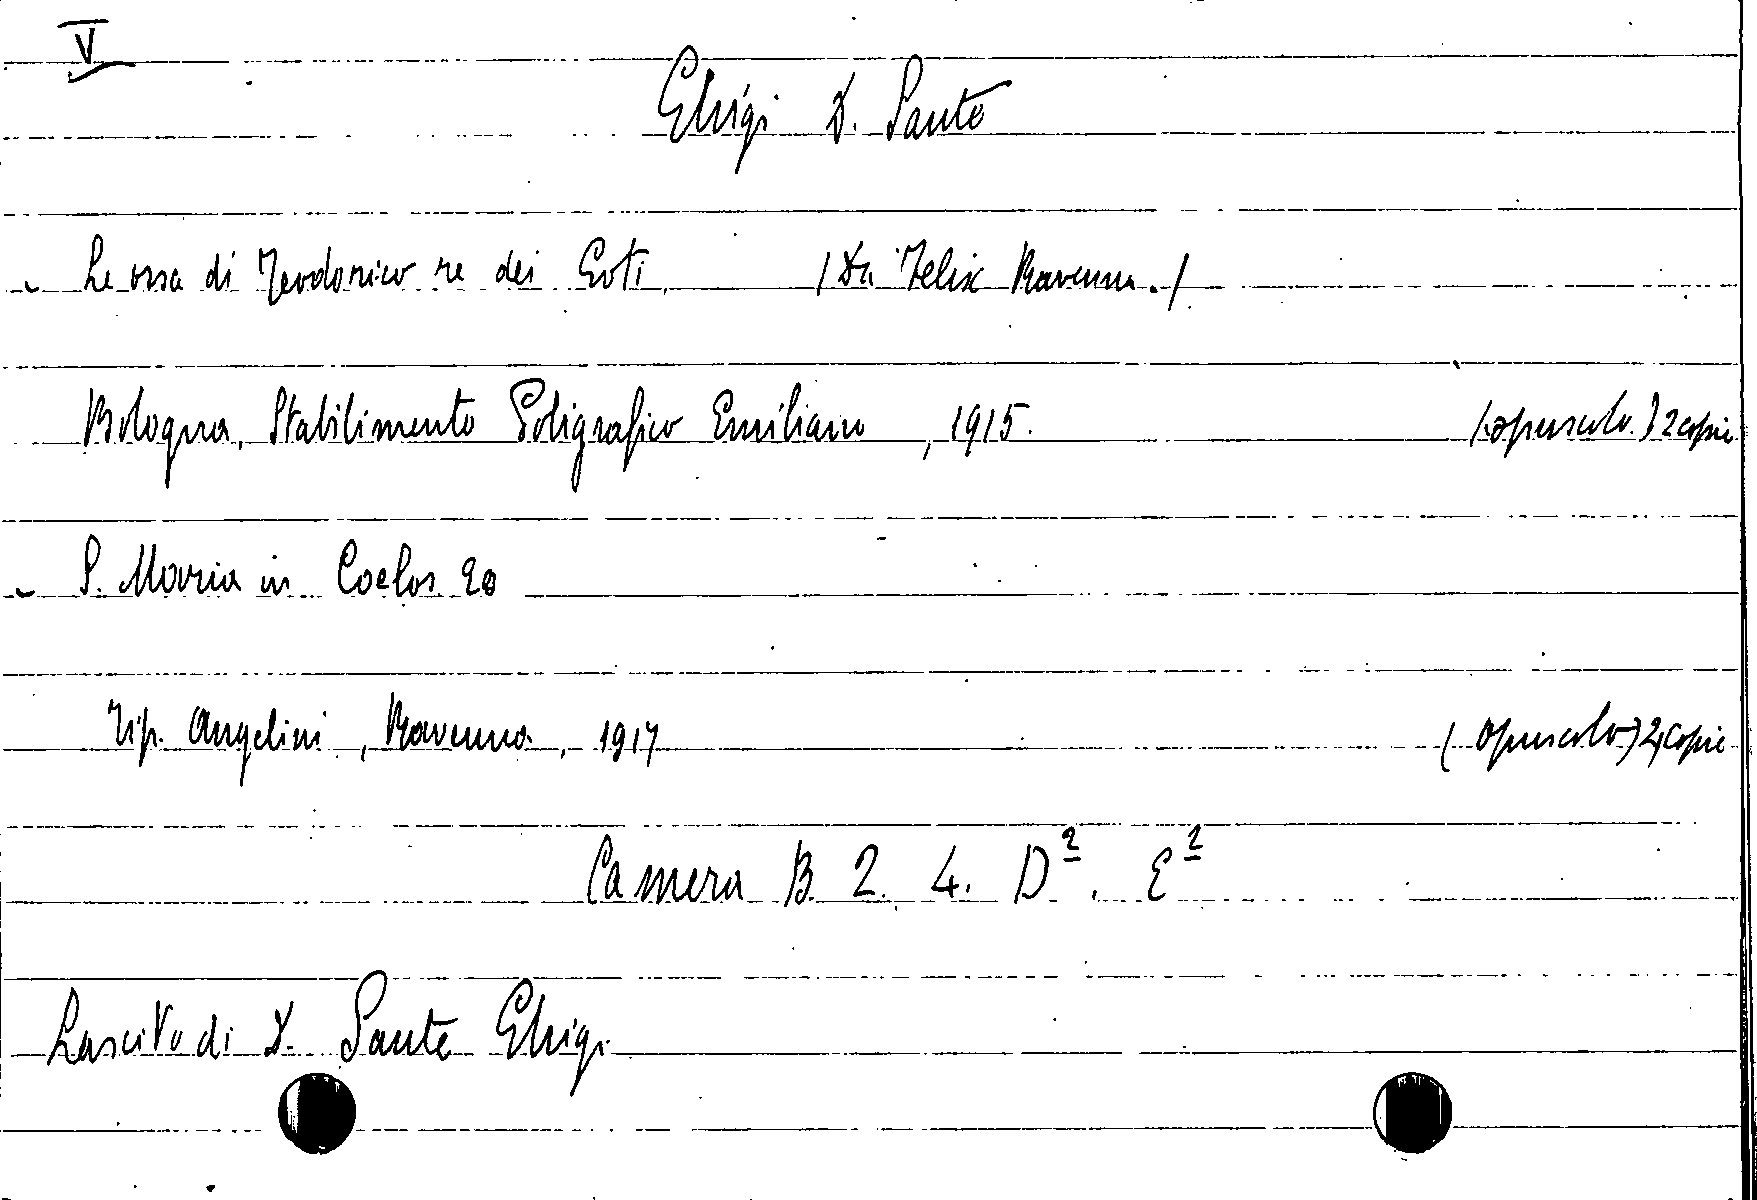 V
Ghigi D. Sante
- Le ossa di Teodorico re dei Goti. (Da Felix Ravenna.)
Bologna, Stabilimento Poligrafico Emiliano, 1915. (opuscolo.) 2 copie
- S. Maria in Coelos eo
Tip. Angelini, Ravenna, 1917 (opuscolo) 2 copie
Camera B. 2. 4. D². E²
Lascito di D. Sante Ghigi.